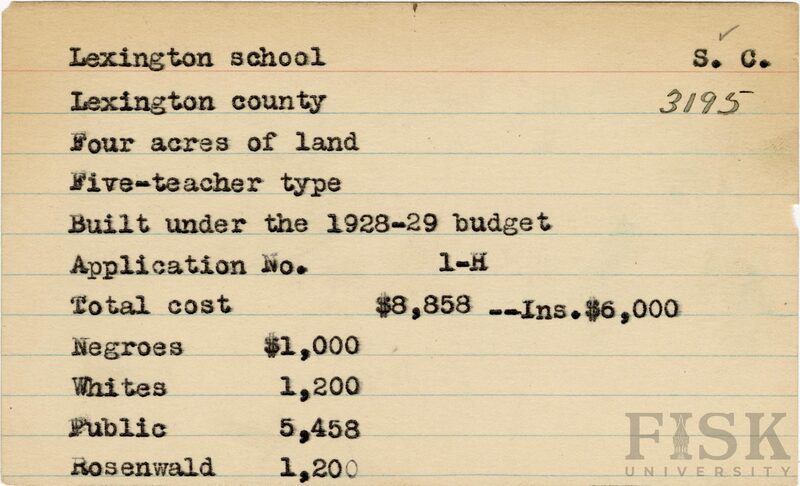 Lexington school S. C.
Lexington county 3195
Four acres of land
Five-teacher type
Built under the 1928-29 budget
Application No. 1-H
Total cost $8,858 --Ins.$6,000
Negroes $1,000
Whites 1,200
Public 5,458
Rosenwald 1,200
FISK
UNIVERSITY